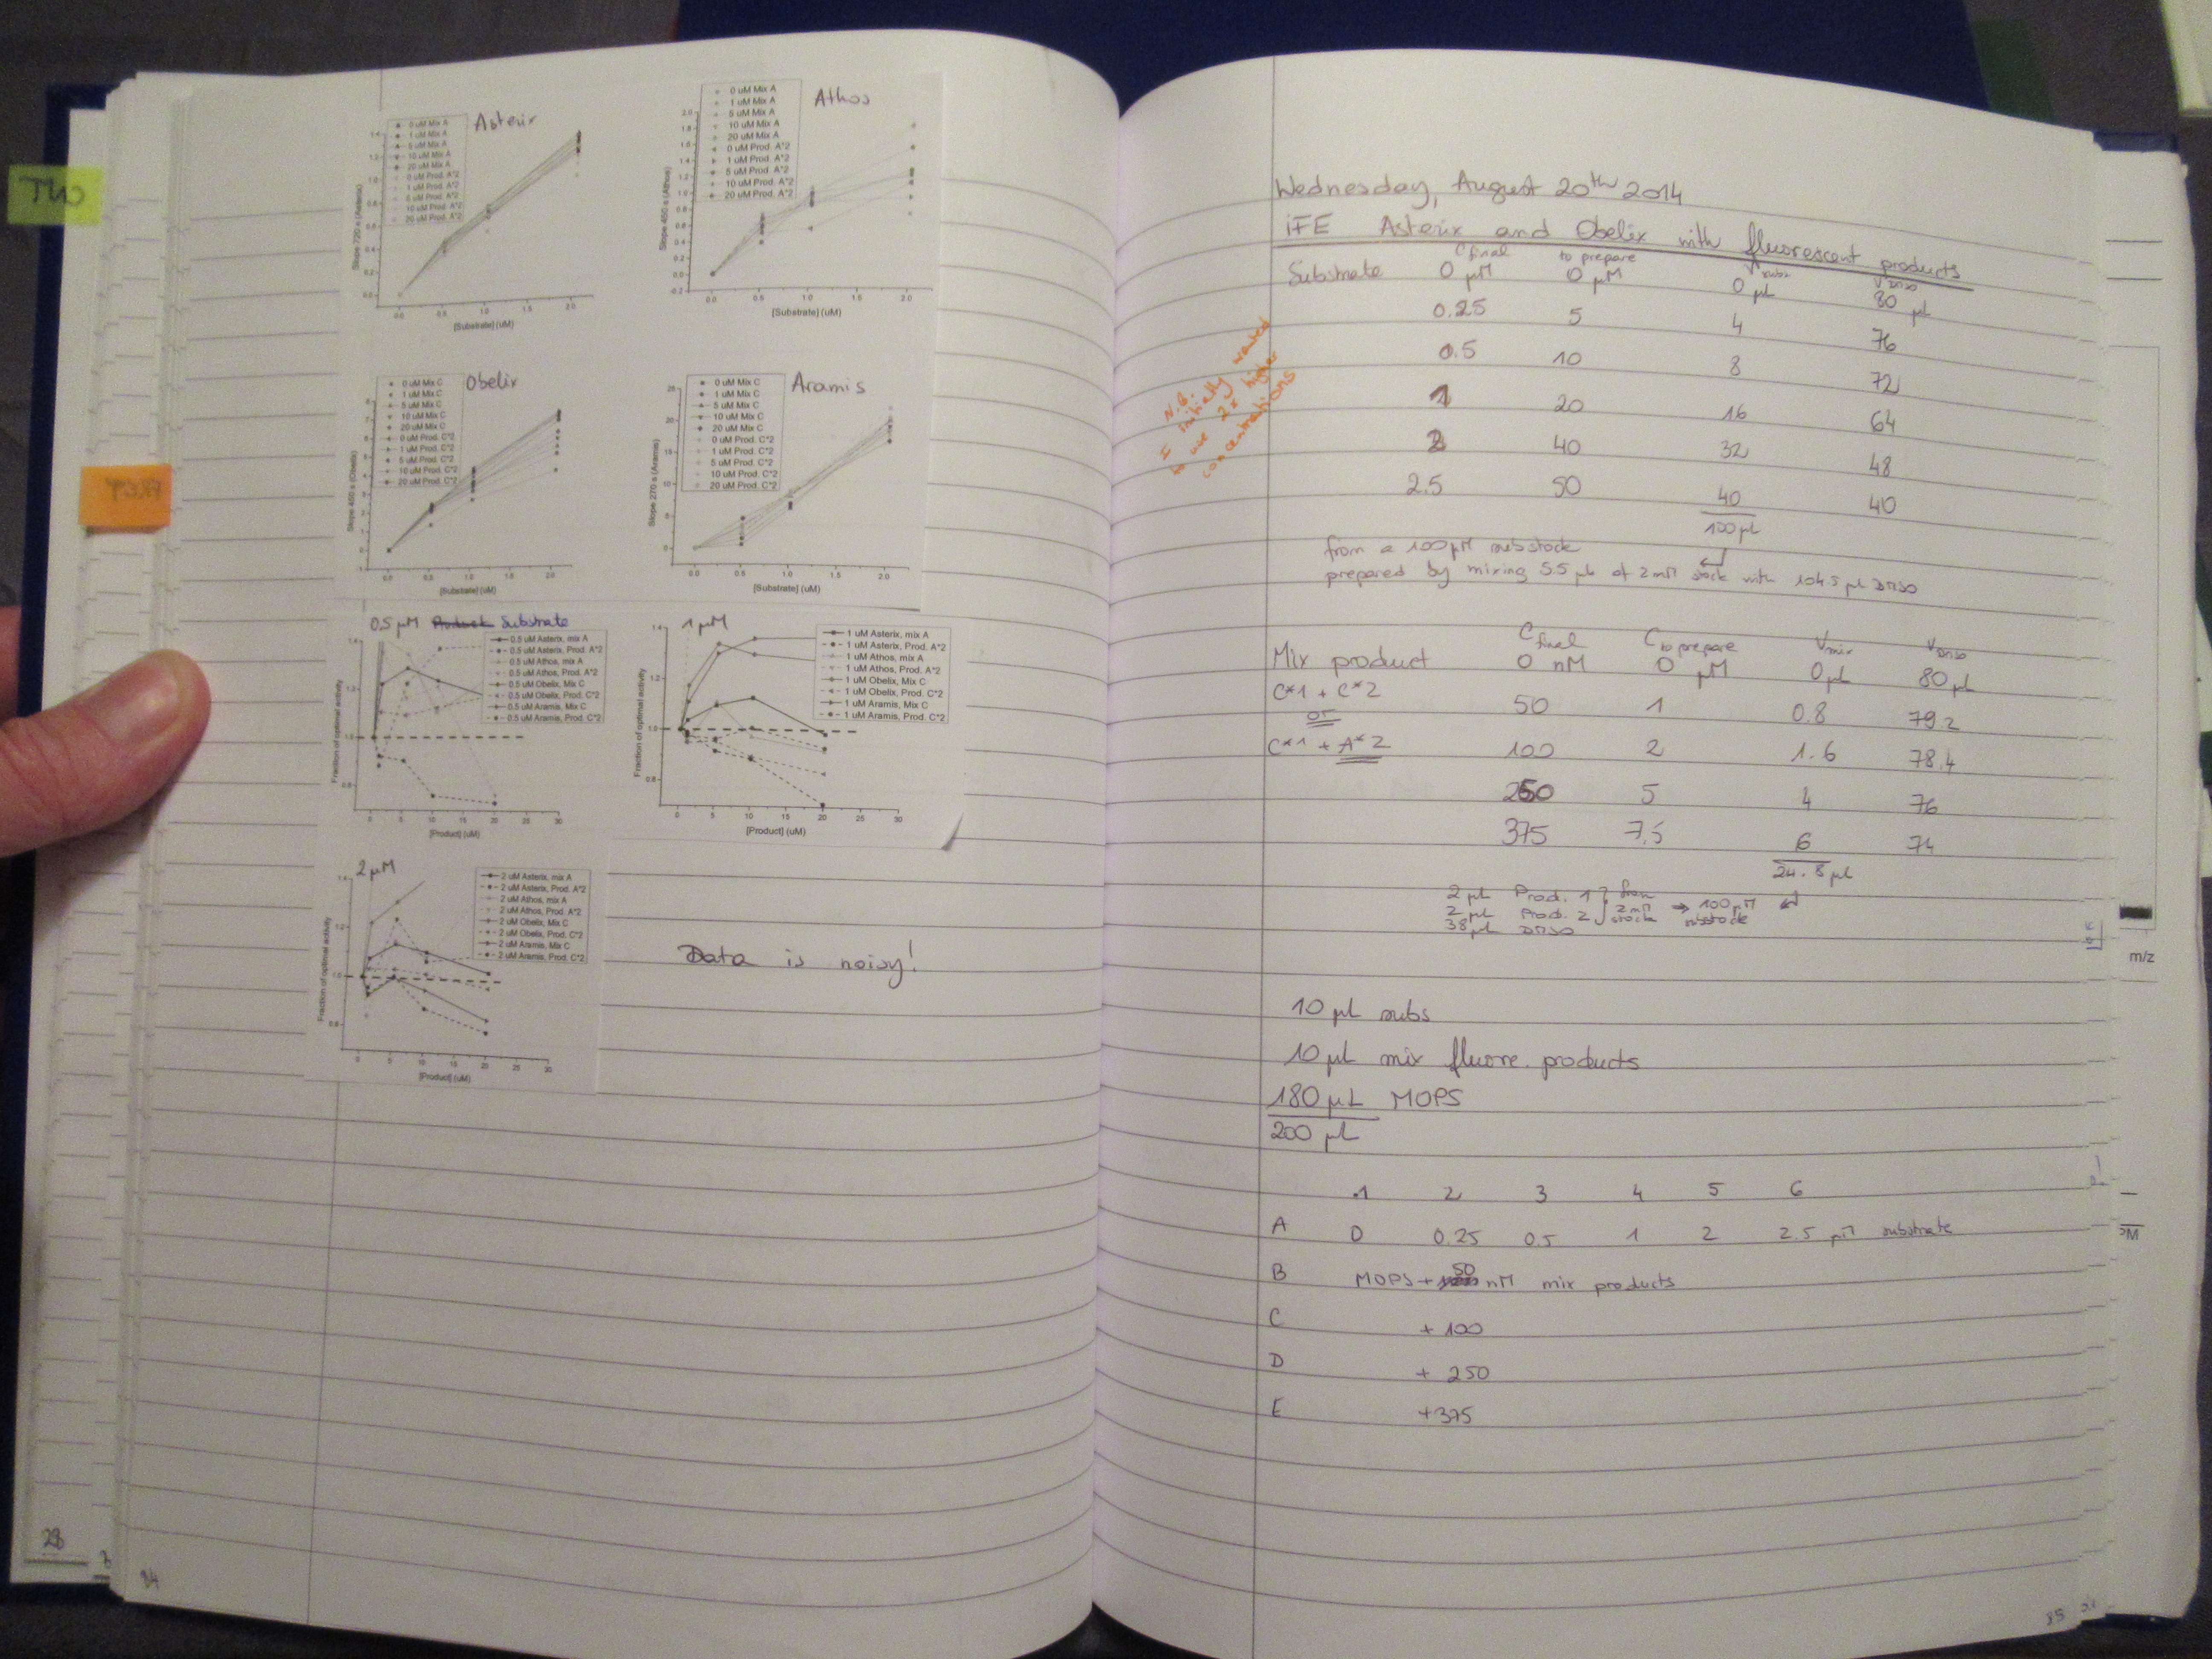 TWO
Asterix
0 uM Mix A
1 uM Mix A
5 uM Mix A
10 uM Mix A
20 uM Mix A
0 uM Prod. A*2
1 uM Prod. A*2
5 uM Prod. A*2
10 uM Prod. A*2
20 uM Prod. A*2
Slope 720 s (Asterix)
0.0 0.5 1.0 1.5 2.0
[Substrate] (uM)
Athos
0 uM Mix A
1 uM Mix A
5 uM Mix A
10 uM Mix A
20 uM Mix A
0 uM Prod. A*2
1 uM Prod. A*2
5 uM Prod. A*2
10 uM Prod. A*2
20 uM Prod. A*2
Slope 450 s (Athos)
0.0 0.5 1.0 1.5 2.0
[Substrate] (uM)
Obelix
0 uM Mix C
1 uM Mix C
5 uM Mix C
10 uM Mix C
20 uM Mix C
0 uM Prod. C*2
1 uM Prod. C*2
5 uM Prod. C*2
10 uM Prod. C*2
20 uM Prod. C*2
Slope 450 s (Obelix)
0.0 0.5 1.0 1.5 2.0
[Substrate] (uM)
Aramis
0 uM Mix C
1 uM Mix C
5 uM Mix C
10 uM Mix C
20 uM Mix C
0 uM Prod. C*2
1 uM Prod. C*2
5 uM Prod. C*2
10 uM Prod. C*2
20 uM Prod. C*2
Slope 270 s (Aramis)
0.0 0.5 1.0 1.5 2.0
[Substrate] (uM)
0.5 µM Product Substrate
0.5 uM Asterix, mix A
0.5 uM Asterix, Prod. A*2
0.5 uM Athos, mix A
0.5 uM Athos, Prod. A*2
0.5 uM Obelix, Mix C
0.5 uM Obelix, Prod. C*2
0.5 uM Aramis, Mix C
0.5 uM Aramis, Prod. C*2
Fraction of optimal activity
0 5 10 15 20 25 30
[Product] (uM)
1 µM
1 uM Asterix, mix A
1 uM Asterix, Prod. A*2
1 uM Athos, mix A
1 uM Athos, Prod. A*2
1 uM Obelix, Mix C
1 uM Obelix, Prod. C*2
1 uM Aramis, Mix C
1 uM Aramis, Prod. C*2
Fraction of optimal activity
0 5 10 15 20 25 30
[Product] (uM)
2 µM
2 uM Asterix, mix A
2 uM Asterix, Prod. A*2
2 uM Athos, mix A
2 uM Athos, Prod. A*2
2 uM Obelix, Mix C
2 uM Obelix, Prod. C*2
2 uM Aramis, Mix C
2 uM Aramis, Prod. C*2
Fraction of optimal activity
0 5 10 15 20 25 30
[Product] (uM)
Data is noisy!
28
84
Wednesday, August 20th 2014
iFE Asterix and Obelix with fluorescent products
C final to prepare V subs V DMSO
Substrate 0 µM 0 µM 0 µL 80 µL
0.25 5 4 76
0.5 10 8 72
1 20 16 64
2 40 32 48
2.5 50 40 40
100 µL
N.B.
I initially wanted
to use 2x higher
concentrations
from a 100 µM substock
prepared by mixing 5.5 µL of 2 mM stock with 104.5 µL DMSO
C final C to prepare V mix V DMSO
Mix product 0 nM 0 µM 0 µL 80 µL
C*1 + C*2 50 1 0.8 79.2
or
C*1 + A*2 100 2 1.6 78.4
250 5 4 76
375 7.5 6 74
24.8 µL
2 µL Prod. 1 from
2 µL Prod. 2 2 mM stock → 100 µM substock
38 µL DMSO
10 µL subs
10 µL mix fluore. products
180 µL MOPS
200 µL
1 2 3 4 5 6
A 0 0.25 0.5 1 2 2.5 µM substrate
B MOPS + 50 nM mix products
C + 100
D + 250
E + 375
85
m/z